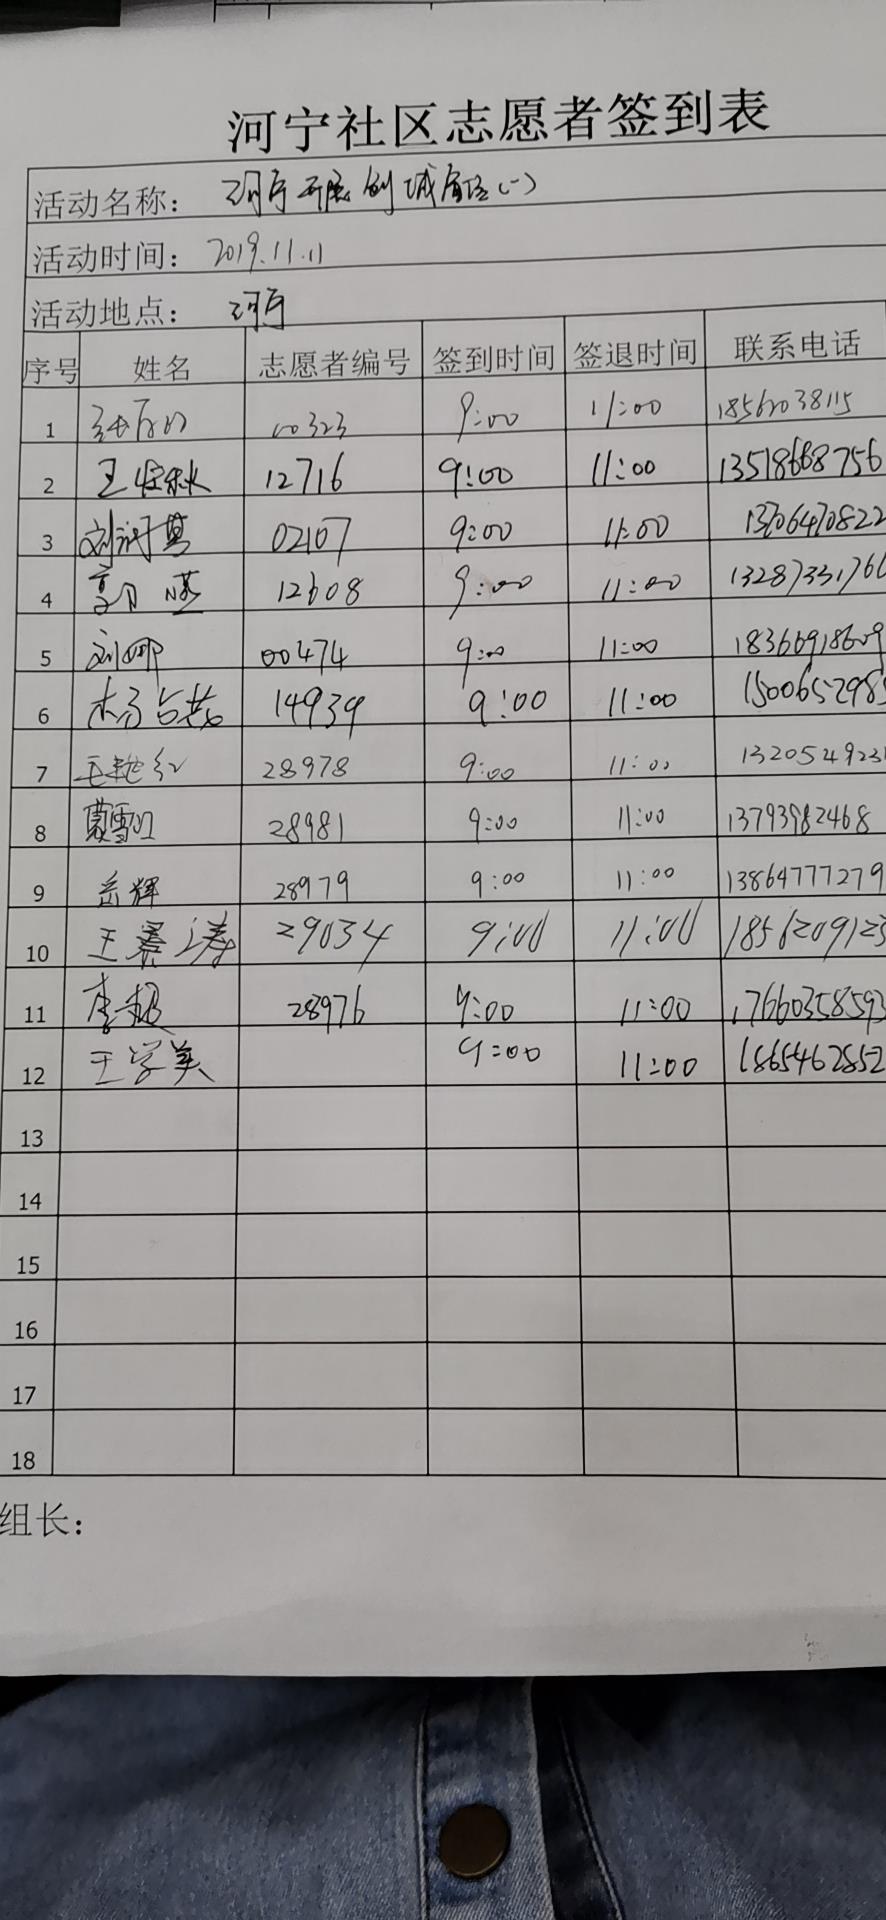 河宁社区志愿者签到表
活动名称： 河宁开展创城宣传(一)
活动时间： 2019.11.11
活动地点： 河宁
序号 姓名 志愿者编号 签到时间 签退时间 联系电话
1 00323 9:00 11:00 18562038115
2 王 12716 9:00 11:00 13518668756
3 刘 02107 9:00 11:00 13706470822
4 12608 9:00 11:00 1328733176
5 刘娜 00474 9:00 11:00 18366918609
6 杨 14939 9:00 11:00 1500652985
7 王艳红 28978 9:00 11:00 1320549231
8 蒙雪 28981 9:00 11:00 13793982468
9 岳辉 28979 9:00 11:00 13864777279
10 王寨涛 29034 9:00 11:00 1856209123
11 李超 28976 9:00 11:00 17660358593
12 王学美 9:00 11:00 1865462852
13
14
15
16
17
18
组长：